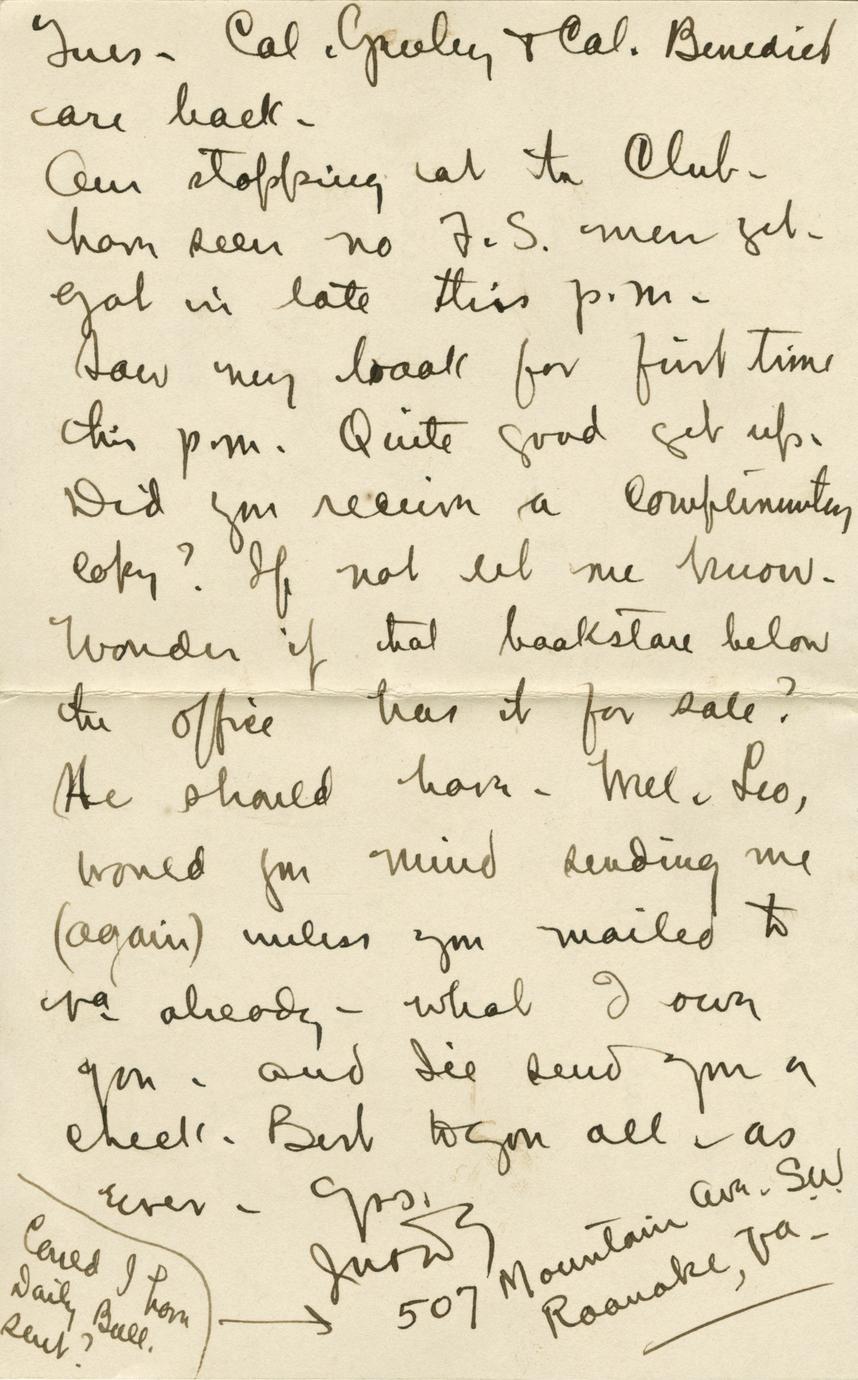 Tues - Col. Greeley & Col. Benedict
are back -
Am stopping at the Club -
have seen no F.S. men yet -
got in late this p.m. -
Saw my book for first time
this p.m. Quite good get up.
Did you receive a complimentary
copy? If not let me know.
Wonder if that bookstore below
the office has it for sale?
He should have - Well, Leo,
would you mind sending me
(again) unless you mailed to
Va already - what I owe
you - and I'll send you a
check. Best to you all - as
ever - Yrs.
507 Mountain Ave. S.W.
Roanoke, Va -
Could I have
Daily Bull.
sent?